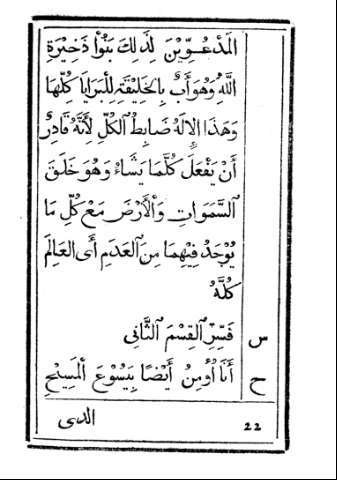 المَدْعُوِّيْنَ لِذَلِكَ بَنُوْا ذَخِيْرَةِ
اللّٰهِ وَهُوَ أَبٌ بِالْخَلِيْقَةِ لِلْبَرَايَا كُلِّهَا
وَهَذَا الإِلَهُ ضَابِطُ الكُلِّ لِأَنَّهُ قَادِرٌ
أَنْ يَفْعَلَ كُلَّمَا يَشَاءُ وَهُوَ خَلَقَ
السَّمَوَاتِ وَالْأَرْضَ مَعَ كُلِّ مَا
يُوْجَدُ فِيْهِمَا مِنَ العَدَمِ أَى العَالَمَ
كُلَّهُ
س فَسِّرِ القِسْمَ الثَّانِى
ح أَنَا أُوْمِنُ أَيْضًا بِيَسُوْعَ المَسِيْحِ
الدى 22